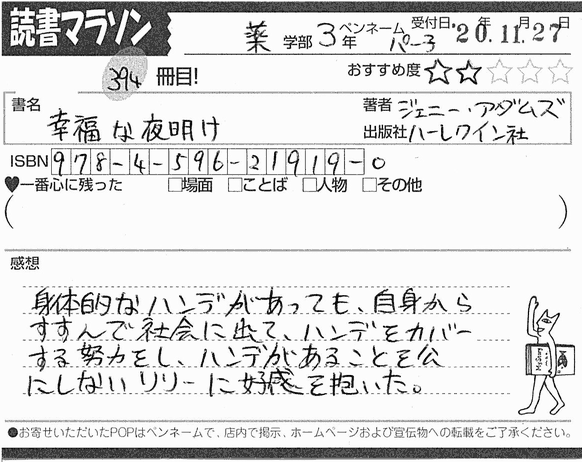 読書マラソン
薬 学部 3年 ペンネーム パー子 受付日 '20.年11.月27日
394 冊目! おすすめ度 ★★☆☆☆
書名 幸福な夜明け
著者 ジェニー・アダムズ
出版社 ハーレクイン社
ISBN 978-4-596-21919-0
♥一番心に残った □場面 □ことば □人物 □その他
( )
感想
身体的なハンデがあっても、自身から
すすんで社会に出て、ハンデをカバー
する努力をし、ハンデがあることを公
にしないリリーに好感を抱いた。
●お寄せいただいたPOPはペンネームで、店内で掲示、ホームページおよび宣伝物への転載をご了承ください。